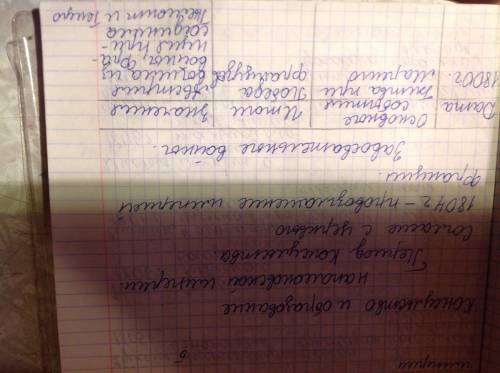 империи
б
Консульство и образование
наполеоновской империи.
Период консульства.
Согласие с церковью
1804г – провозглашение империей
Франции.
Завоевательные войны.
Дата | Основное события | Итоги | Значение
1800г. | Битва при Маренго | Победа французов | Австрия вышла из войны, Фра-нция при-соединила Пьемонт и Геную